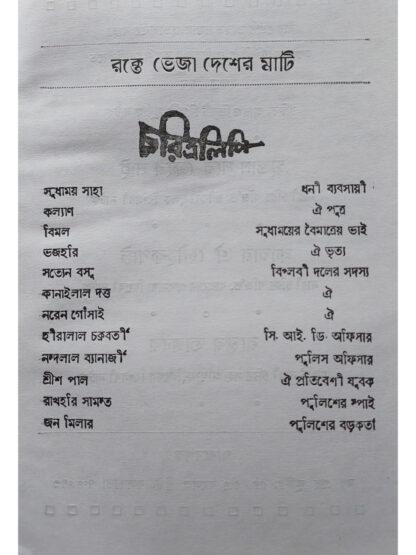 রক্তে ভেজা দেশের মাটি
চরিত্রলিপি
সুধাময় সাহা ধনী ব্যবসায়ী
কল্যাণ ঐ পুত্র
বিমল সুধাময়ের বৈমাত্রেয় ভাই
ভজহরি ঐ ভৃত্য
সত্যেন বসু বিপ্লবী দলের সদস্য
কানাইলাল দত্ত ঐ
নরেন গোঁসাই ঐ
হীরালাল চক্রবর্তী সি. আই. ডি. অফিসার
নন্দলাল ব্যানার্জী পুলিস অফিসার
শ্রীশ পাল ঐ প্রতিবেশী যুবক
রাখহরি সামন্ত পুলিশের স্পাই
জন মিলার পুলিশের বড়কর্তা